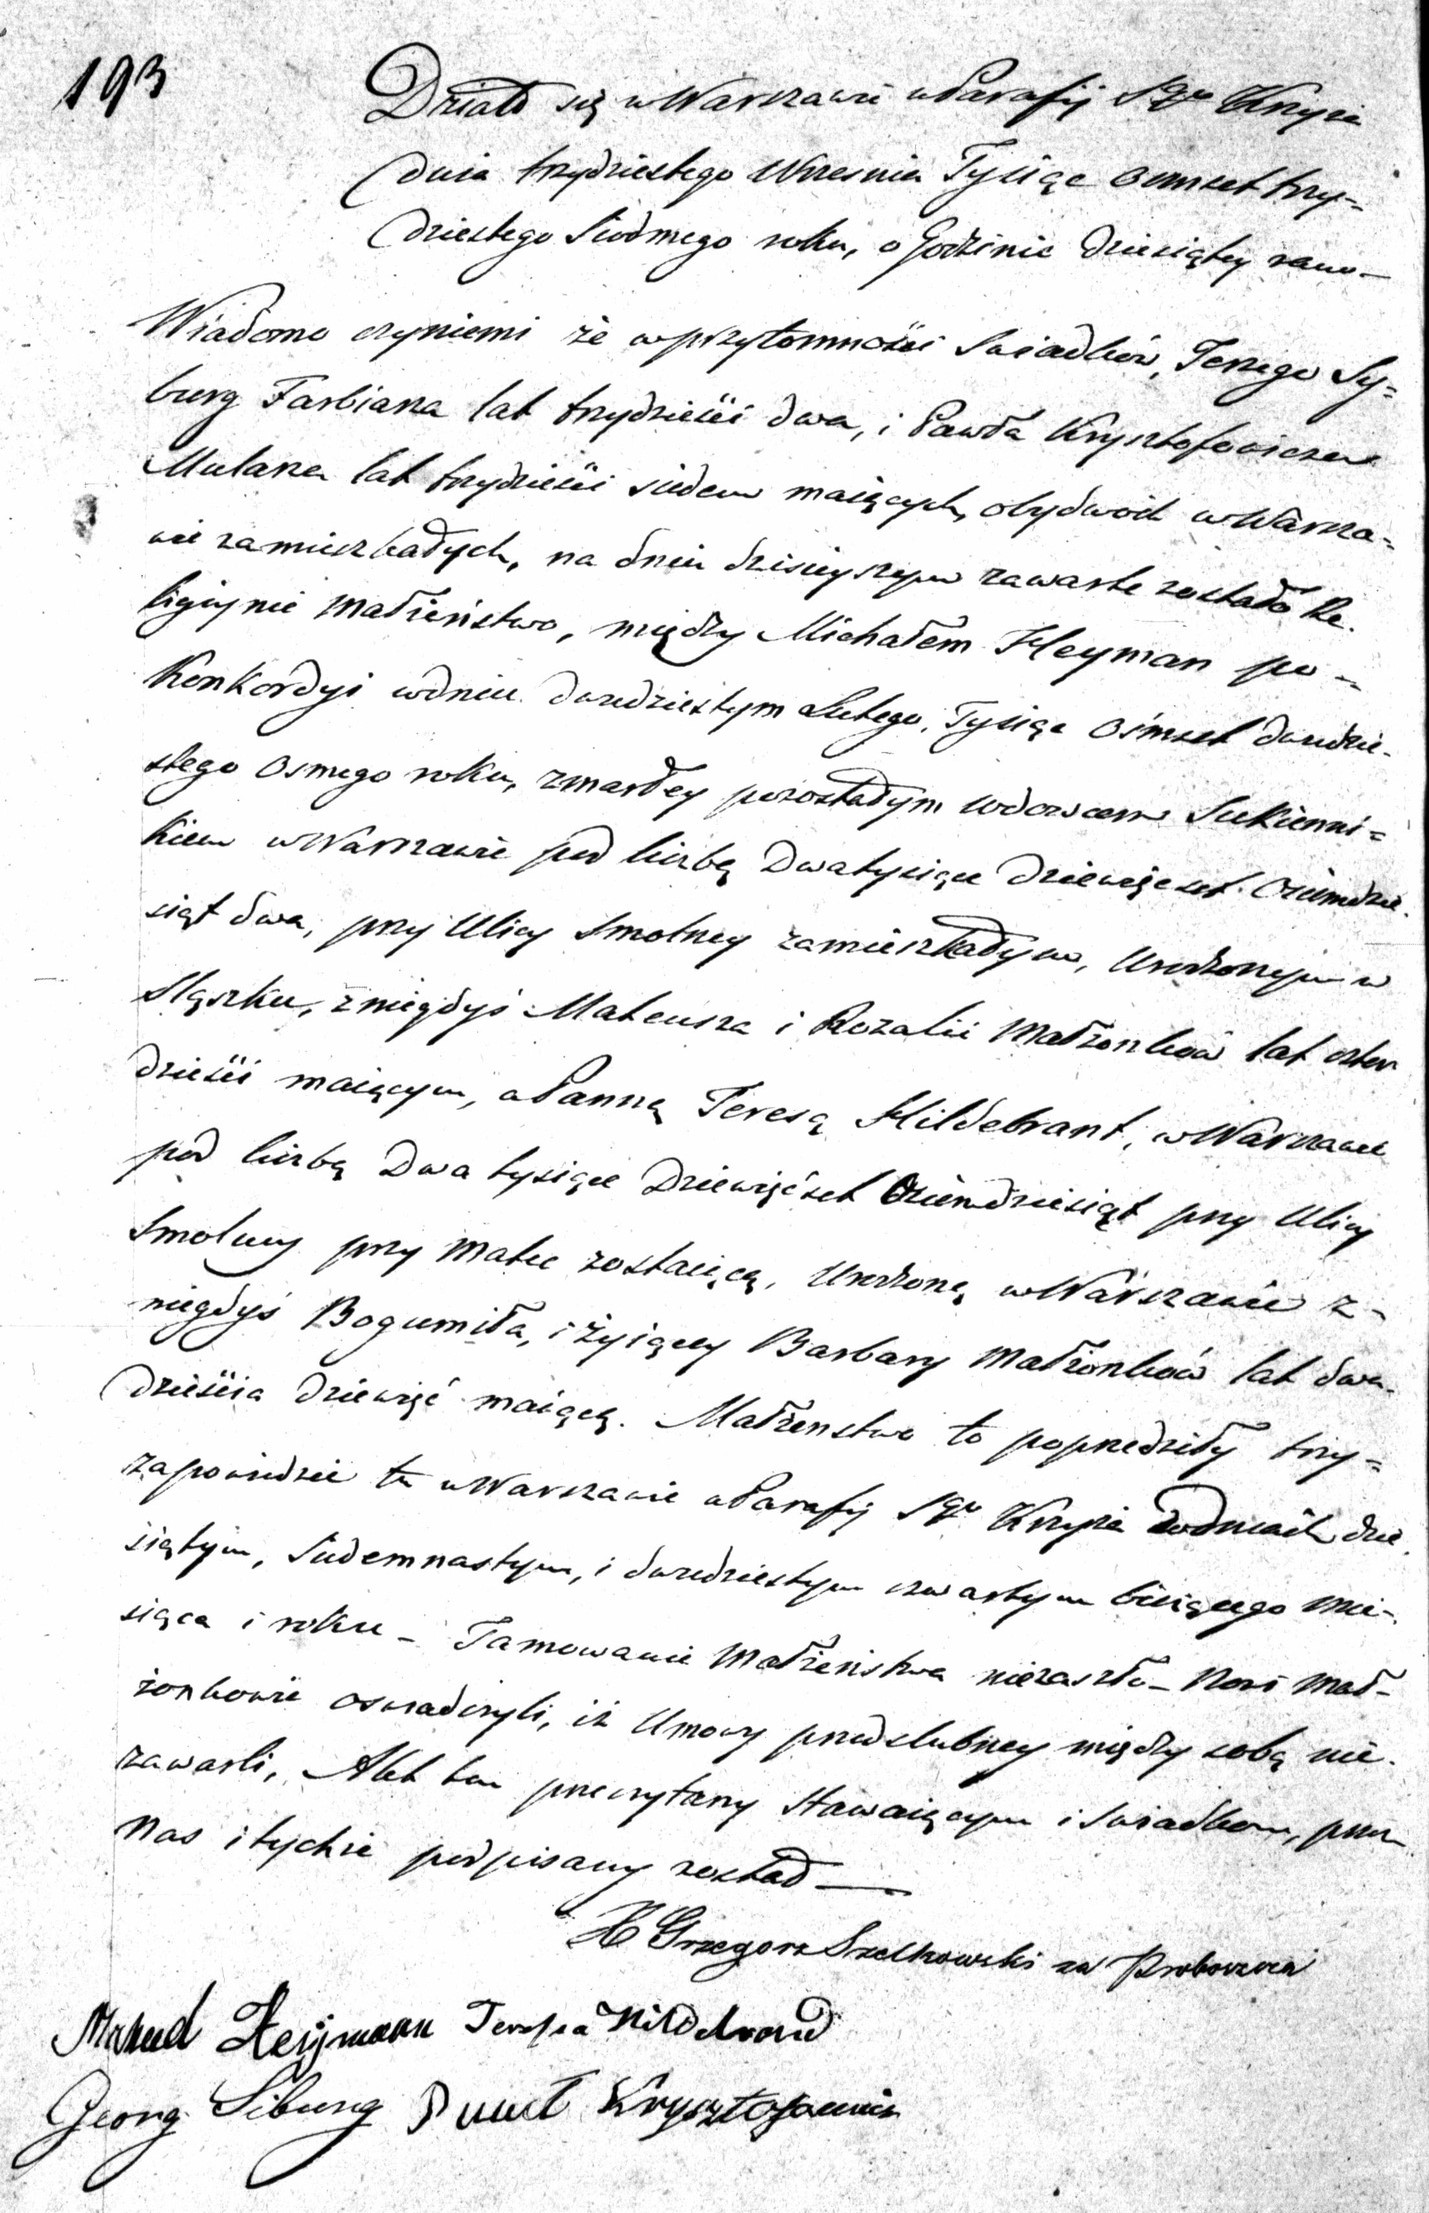 193
Działo się w Warszawie w Parafij Sgo Krzyża
dnia trzydziestego Wrzesnia Tysiąc osmset trzy=
dziestego Siódmego roku, o Godzinie dziesiątey rano –
Wiadomo czyniemi że w przytomności Swiadków, Jerzego Sy=
burg Farbiarza lat trzydzieści dwa, i Pawła Krysztofowicza
Mularza lat trzydzieści siedem maiących, obydwóch w Warsza=
wie zamieszkałych, na dniu dzisieyszym zawarte zostało Re.
ligijnie Małżeństwo, między Michałem Heyman po –
Konkordyi w dniu dwudziestym Lutego, Tysiąc Ośmset dwudzie-
stego Osmego roku, zmarłey pozostałym wdowcem Sukienni=
kiem w Warszawie pod liczbą Dwa tysiące dziewięcset Ośiemdzie.
siąt dwa, przy Ulicy Smolney zamieszkałym, Urodzonym w
Sląsku, z niegdyś Mateusza i Rozalii Małżonków lat czter
dzieści maiącym, a Panną Teresą Hildebrant, w Warszawie
pod liczbą Dwa tysiące Dziewięćset Ośiemdziesiąt przy Ulicy
Smolney przy Matce zostaiącą, Urodzoną w Warszawie z –
niegdyś Bogumiła, i żyiącey Barbary Małżonków lat dwa-
dzieścia dziewięć maiącą. Małżenstwo to poprzedziły trzy=
zapowiedzie tu w Warszawie w Parafij Sgo Krzyża w dniach dzie.
siątym, Siedemnastym, i dwudziestym czwartym bieżącego Mie-
siąca i roku – Tamowanie Małżeństwa niezaszło – Nowi Mał-
żonkowie oswiadczyli, iż Umowy przedslubney między sobą nie.
zawarli, Akt ten przeczytany Stawaiącym i Swiadkom, przez
Nas i tychże podpisany został —
X Grzegorz Szelkowski za Proboszcza
Heijmann Teresia Hildebrand
Georg Siburg Paweł Krysztofowicz